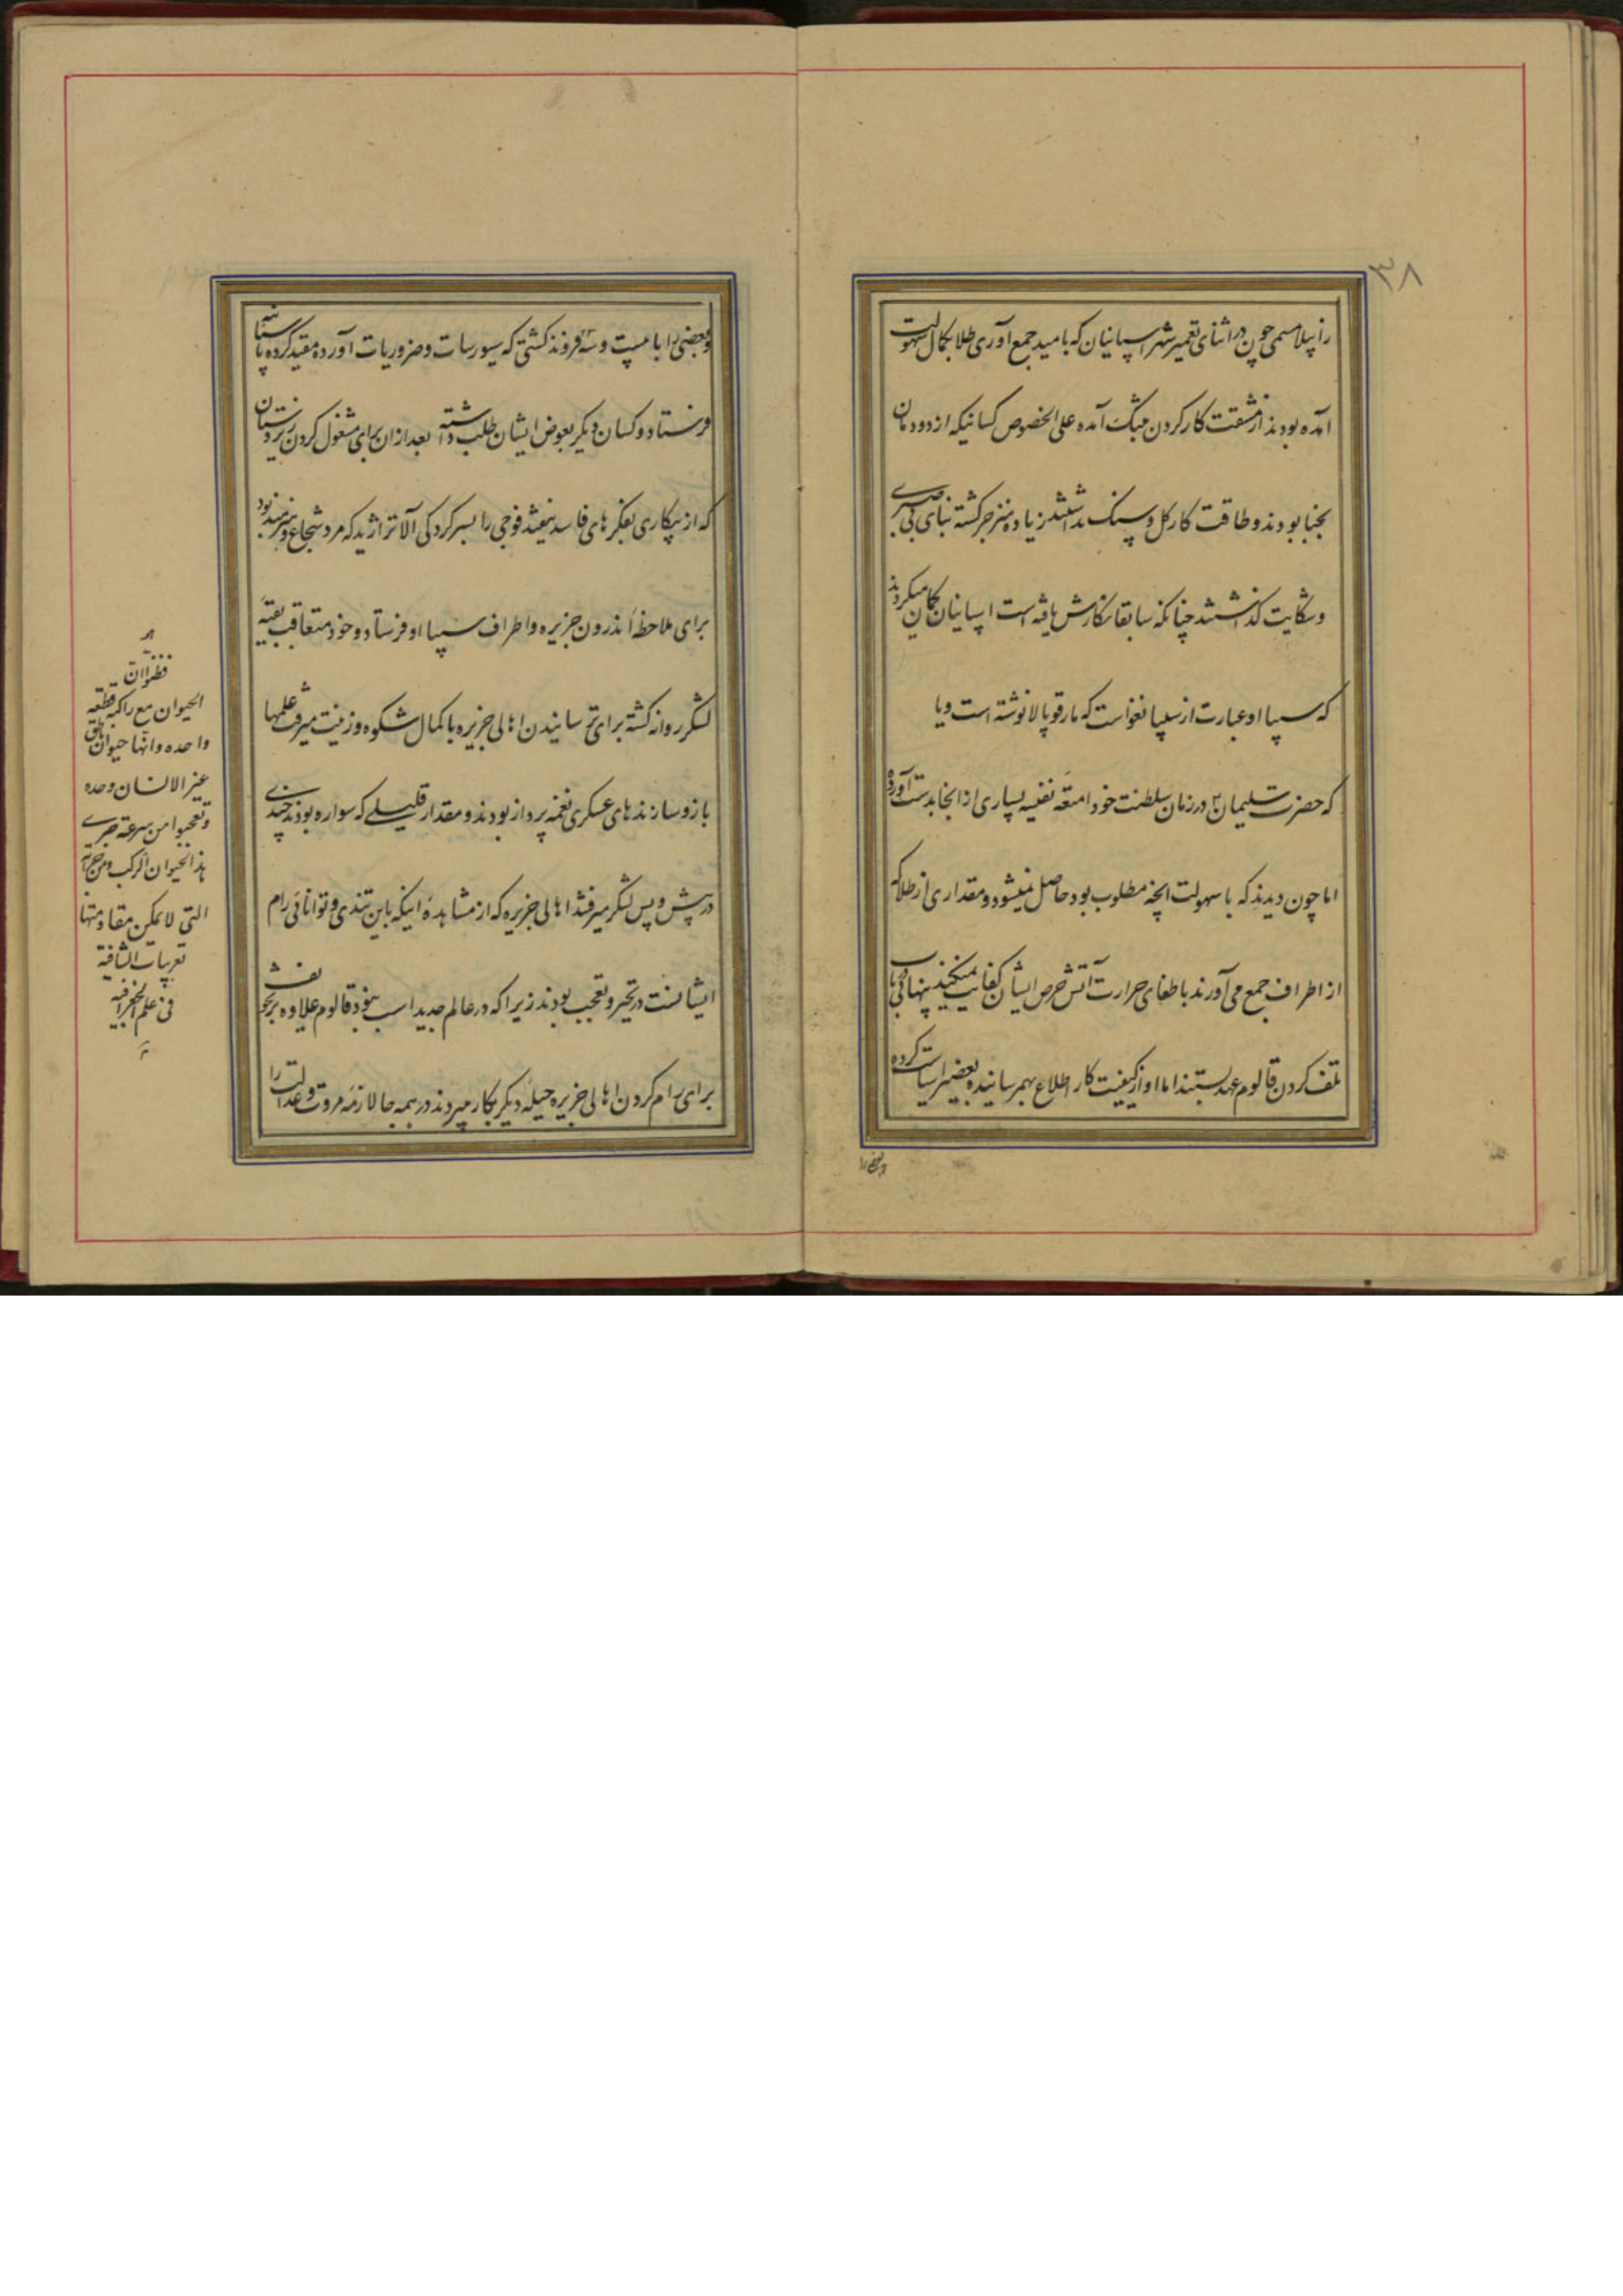 ۳۸
را ایپلا مسمی چون در اثنای تعمیر شهر اسپانیان که بامید جمع آوری طلا بکمال سهولت
آمده بودند از مشقت کار کردن بتنک آمده علی الخصوص کسانیکه از دودمان
نجبا بودند و طاقت کار کل و سنک نداشتند زیاده منزجر کشته بنای بی صبری
و شکایت کذاشتند چنانکه سابقا نکارش یافته است اسپانیان کمان میکردند
که سیپااو عبارت از سیپانغو است که مارقوپالا نوشته است و یا
که حضرت سلیمان در زمان سلطنت خود امتعه نفیسه بسیاری از انجا بدست آورده
اما چون دیدند که با سهولت انچه مطلوب بود حاصل نمیشود و مقداری از طلا که
از اطراف جمع می آورند باطفای حرارت آتش حرص ایشان کفایت نمیکند پنهانی در باب
تلف کردن قالوم عهد بستند اما او از کیفیت کار اطلاع بهمرسانیده بعضیرا سیاست کرده
و بعضی را
و بعضی را با بیست و سه فروند کشتی که سیورسات و ضروریات آورده مقید کرده باسپانیه
فرستاد و کسان دیکر بعوض ایشان طلب داشته بعد ازان برای مشغول کردن زیردستان
که از بیکاری بفکرهای فاسد نیفتند فوجی را بسر کرد کی آلانزاژید که مرد شجاع و هنرمند بود
برای ملاحظه اندرون جزیره و اطراف سیپااو فرستاد و خود متعاقب بقیه
لشکر روانه کشته برای ترسانیدن اهالی جزیره با کمال شکوه و زینت میرفت علمها
باز و سازندهای عسکری نغمه پرداز بودند و مقدار قلیلی که سواره بودند چندی
در پیش و پس لشکر میرفتند اهالی جزیره که از مشاهده اینکه باین تندی و توانائی رام
ایشانست در تحیر و تعجب بودند زیرا که در عالم جدید اسب نبود قالوم علاوه بر تخویف
برای رام کردن اهالی جزیره حیله دیکر بکار میبردند در همه جا لازمه مروت و عدالت را
فظنوا ان
الحیوان مع راکبه قطعه
واحده وانها حیوان ناطق
غیر الانسان وحده
وتعجبوا من سرعة جری
هذا الحیوان المرکب ومن
التی لا یمکن مقاومتها
تعریبات الشافیه
فی علم الجغرافیه